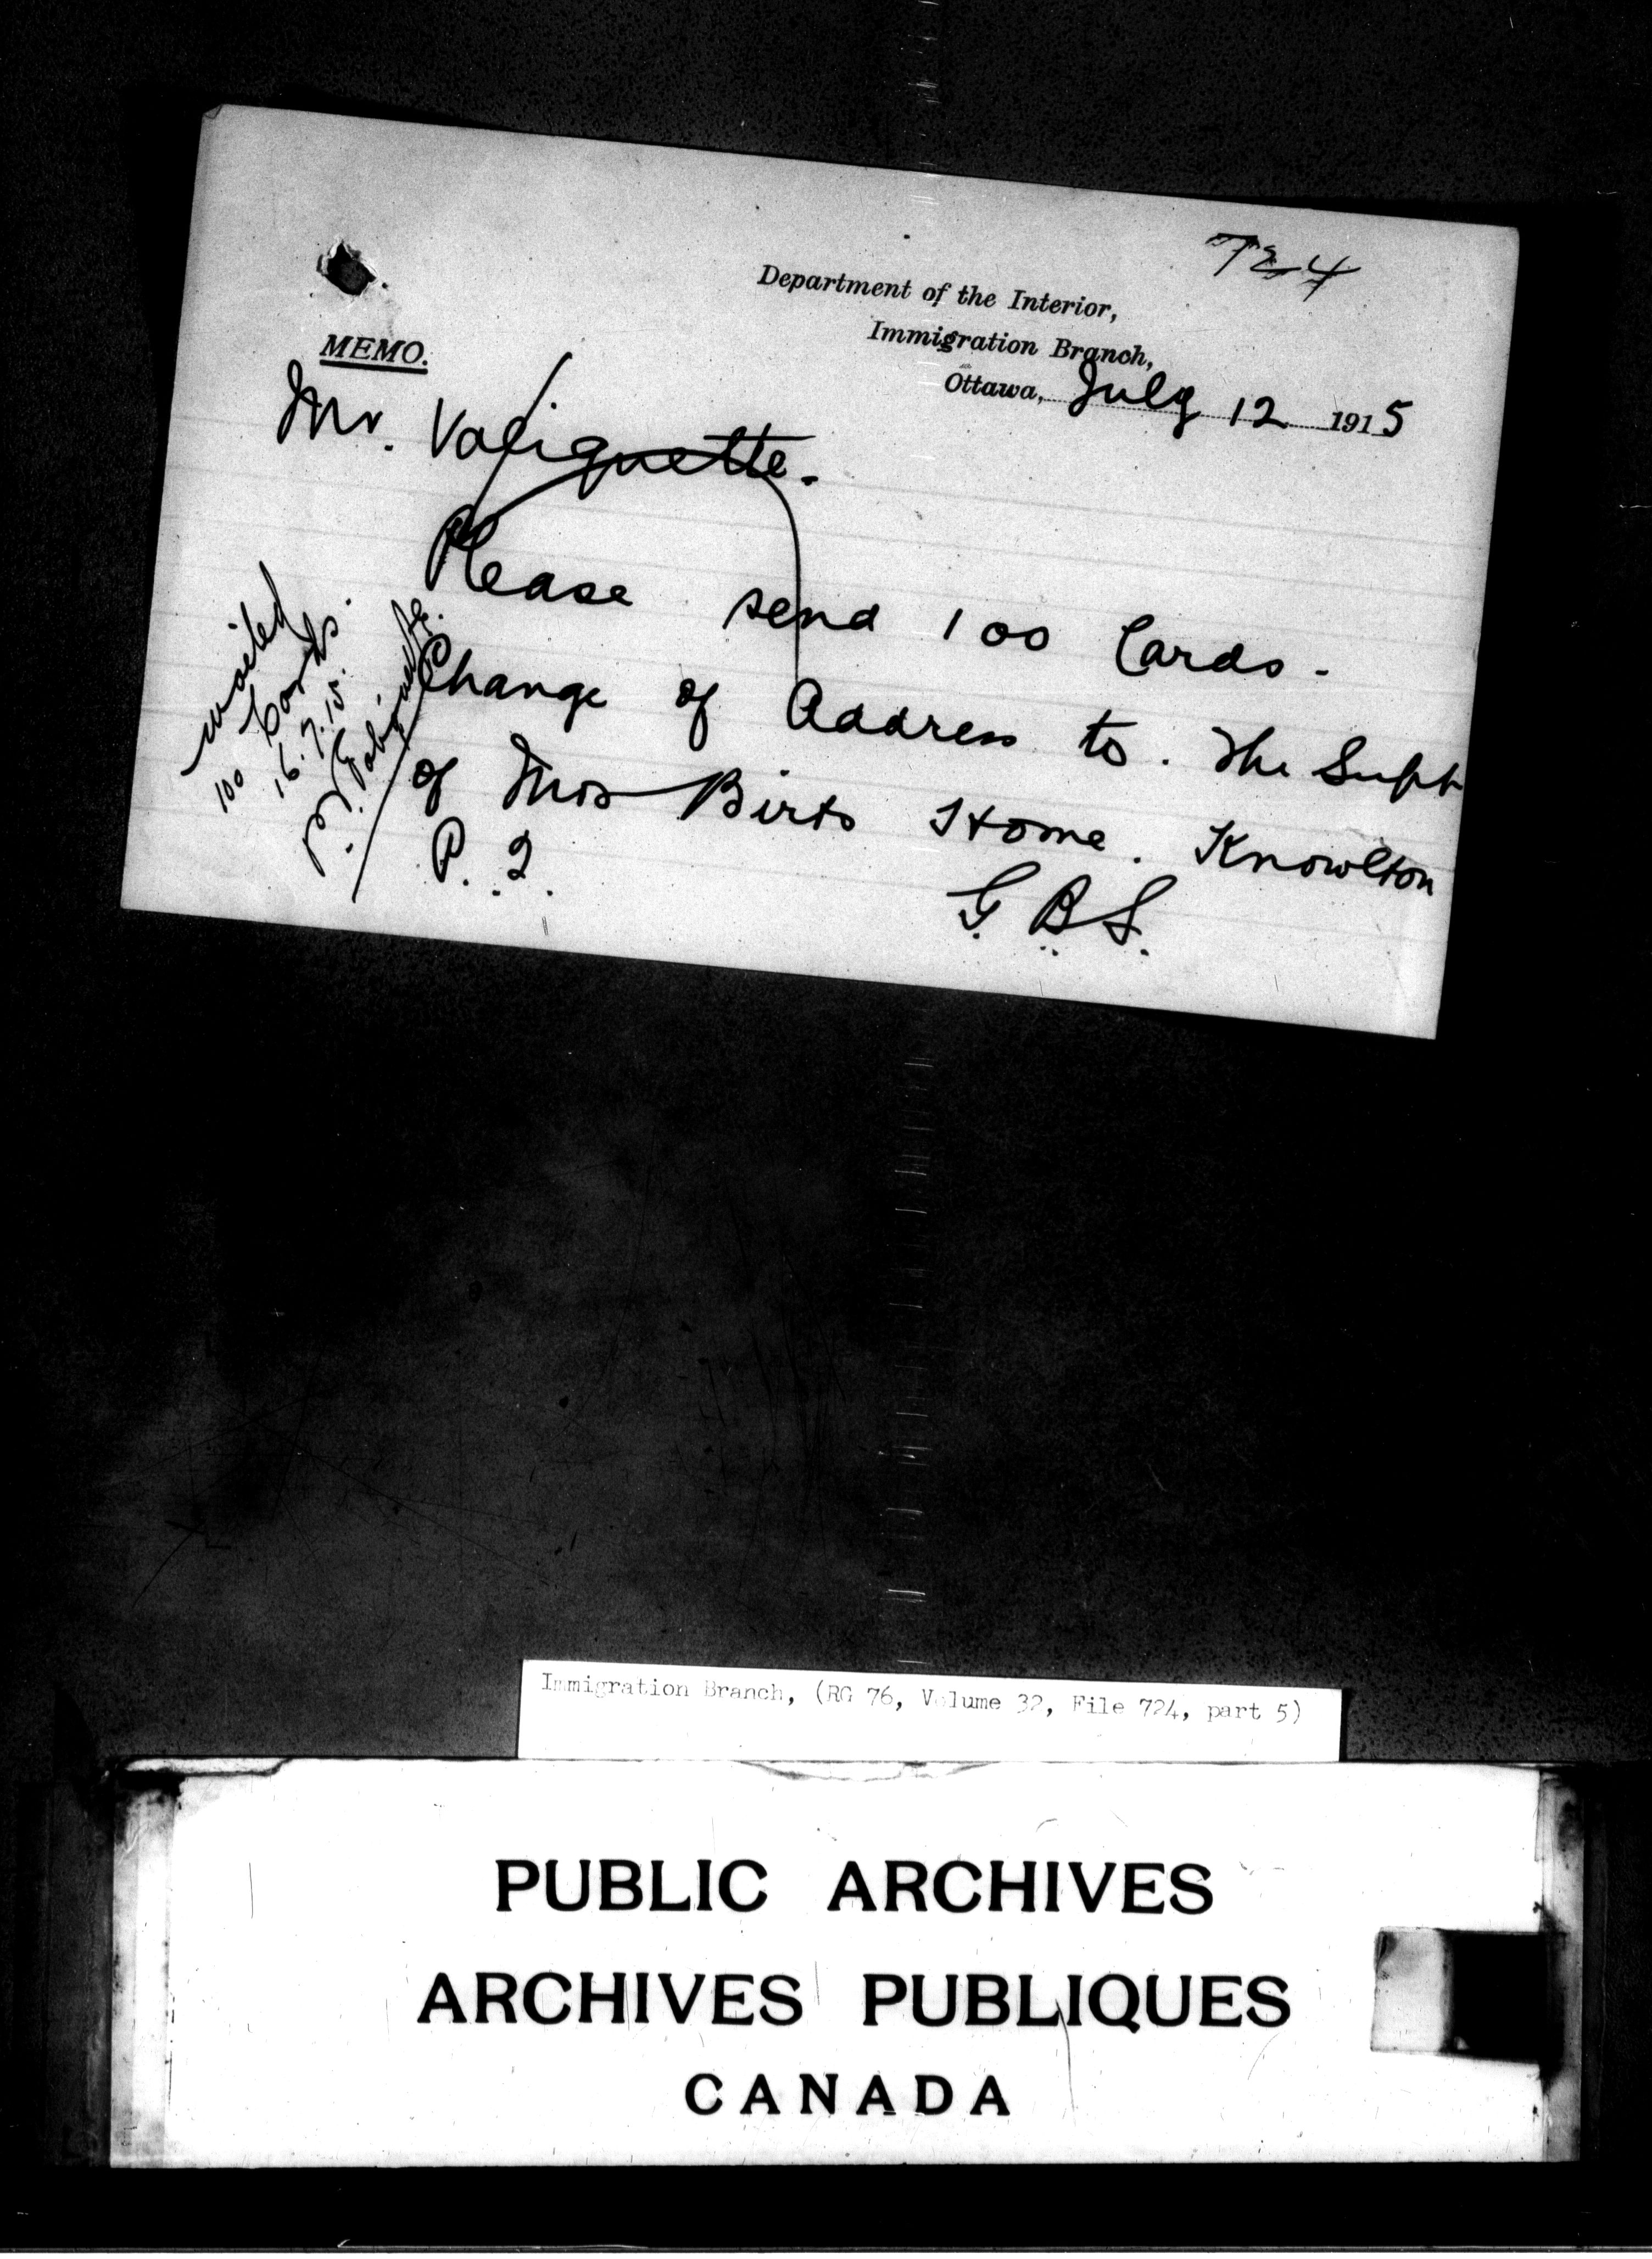 724
Department of the Interior,
Immigration Branch,
Ottawa, July 12 1915
MEMO.
Mr. Valiquette.
Please send 100 Cards.
Change of Address to. The Supt
of Mrs Birts Home. Knowlton
P. Q.
G. B. S.
mailed
100 Cards.
16.7.15.
Immigration Branch, (RG 76, Volume 32, File 724, part 5)
PUBLIC ARCHIVES
ARCHIVES PUBLIQUES
CANADA